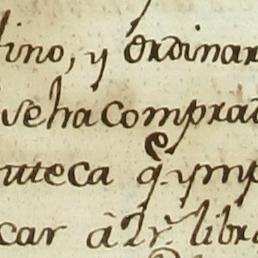 tino, y ordinar
seha comprad
uteca q.e ymp
car à 2 r.s libra